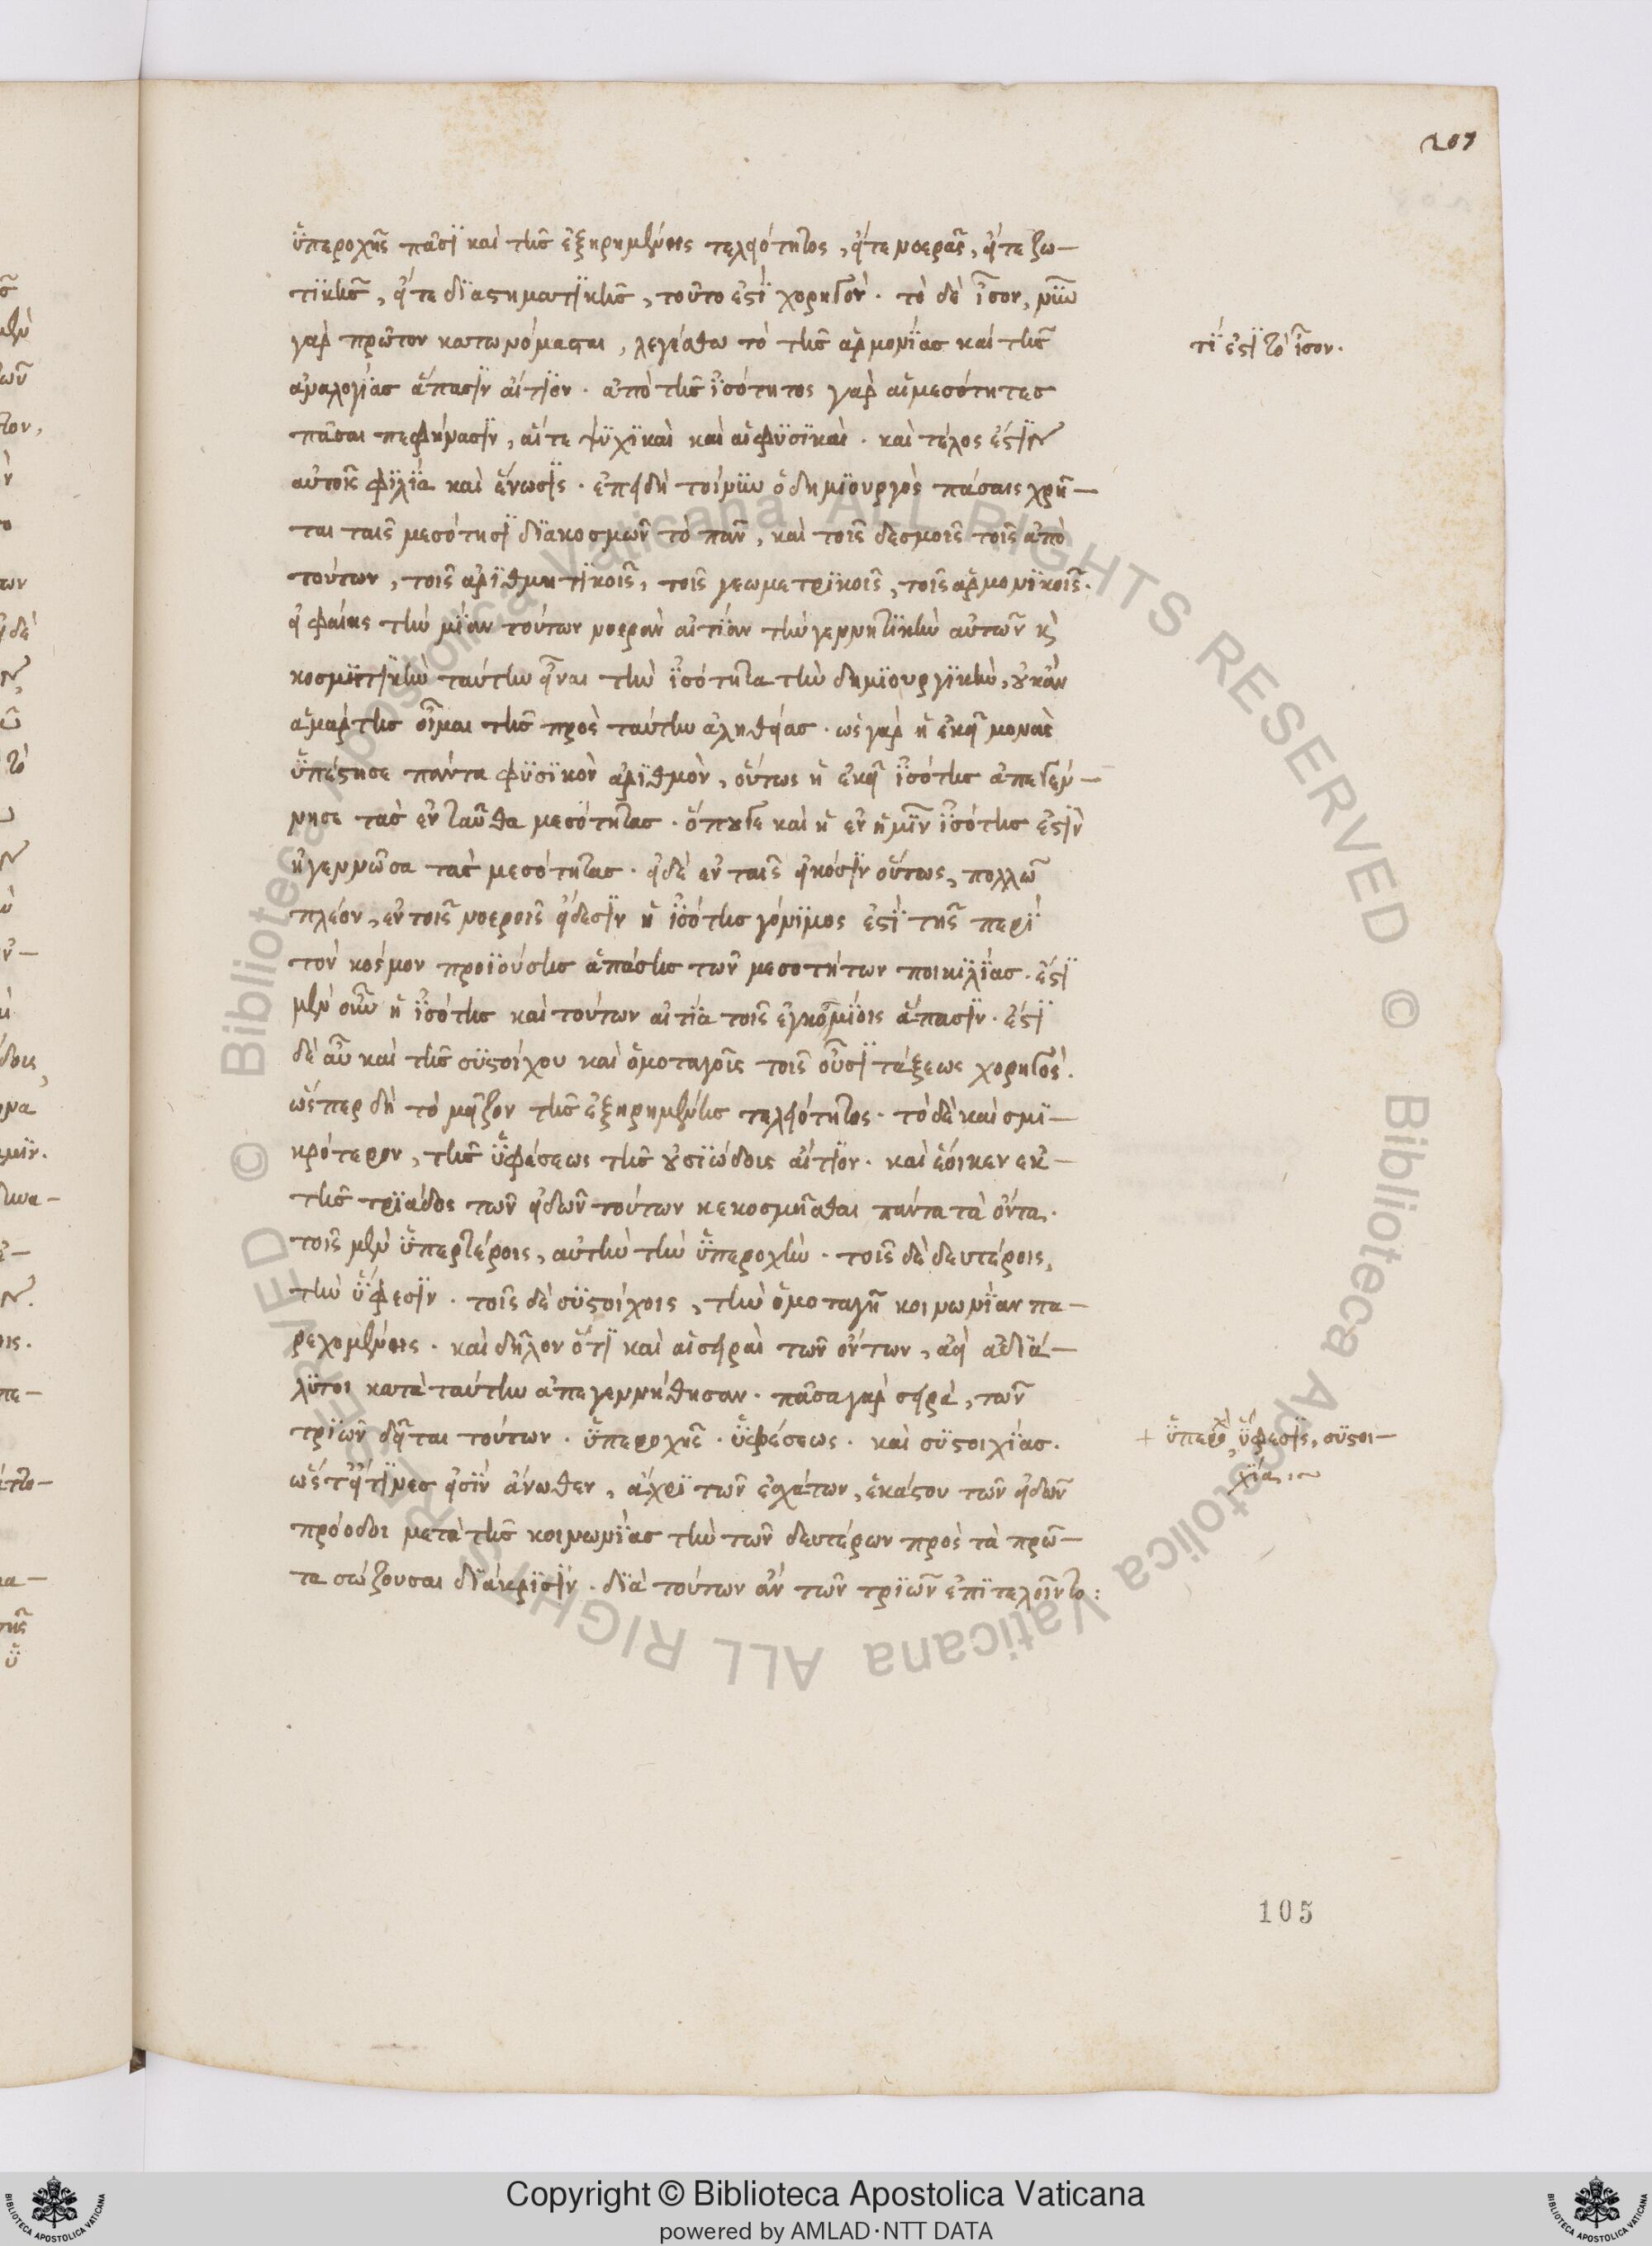 209
ὑπεροχῆς πᾶσι καὶ τῆς ἐξῃρημένης τελειότητος, εἴτε νοερᾶς, εἴτε ζω-
τικῆς, εἴτε διαστηματικῆς, τοῦτο ἐστὶ χορηγόν. τὸ δὲ ἴσον, νῦν
γὰρ πρῶτον κατωνόμασται, λεγέσθω τὸ τῆς ἁρμονίας καὶ τῆς
τί ἐστι τὸ ἴσον.
ἀναλογίας ἅπασιν αἴτιον. ἀπὸ τῆς ἰσότητος γὰρ αἱ μεσότητες
πᾶσαι πεφήνασιν, αἵτε ψυχικαὶ καὶ αἱ φυσικαὶ. καὶ τέλος ἐστὶν
αὐτοῖς φιλία καὶ ἕνωσις. ἐπειδὴ τοίνυν ὁ δημιουργὸς πάσαις χρῆ-
ται ταῖς μεσότησι διακοσμῶν τὸ πᾶν, καὶ τοῖς δεσμοῖς τοῖς ἀπὸ
τούτων, τοῖς ἀριθμητικοῖς, τοῖς γεωμετρικοῖς, τοῖς ἁρμονικοῖς.
εἰ φαίης τὴν μίαν τούτων νοερὰν αἰτίαν τὴν γεννητικὴν αὐτῶν κὶ
κοσμητικὴν ταύτην εἶναι τὴν ἰσότητα τὴν δημιουργικὴν, οὐκ ἂν
ἁμάρτης οἶμαι τῆς πρὸς ταύτην ἀληθείας. ὡς γὰρ ἡ ἐκεῖ μονὰς
ὑπέστησε πάντα φυσικὸν ἀριθμὸν, οὕτως ἡ ἐκεῖ ἰσότης ἀπεγέν-
νησε τὰς ἐνταῦθα μεσότητας. ὅπουγε καὶ ἡ ἐν ἡμῖν ἰσότης ἐστὶν
ἡ γεννῶσα τὰς μεσότητας. εἰ δὲ ἐν ταῖς εἰκόσιν οὕτως, πολλῶ
πλέον, ἐν τοῖς νοεροῖς εἴδεσιν ἡ ἰσότης γόνιμος ἐστὶ τῆς περὶ
τὸν κόσμον προϊούσης ἁπάσης τῶν μεσοτήτων ποικιλίας. ἔστι
μὲν οὖν ἡ ἰσότης καὶ τούτων αἰτία τοῖς ἐγκοσμίοις ἅπασιν. ἔστι
δὲ αὖ καὶ τῆς συστοίχου καὶ ὁμοταγοῦς τοῖς οὖσι τάξεως χορηγός.
ὥσπερ δὴ τὸ μεῖζον τῆς ἐξῃρημένης τελειότητος. τὸ δὲ καὶ σμι-
κρότερον, τῆς ὑφέσεως τῆς οὐσιώδους αἴτιον. καὶ ἔοικεν ἐκ-
τῆς τριάδος τῶν εἰδῶν τούτων κεκοσμῆσθαι πάντα τὰ ὄντα.
τοῖς μὲν ὑπερτέροις, αὐτὴν τὴν ὑπεροχὴν. τοῖς δὲ δευτέροις,
τὴν ὕφεσιν. τοῖς δὲ συστοίχοις, τὴν ὁμοταγῆ κοινωνίαν πα-
ρεχομένοις. καὶ δῆλον ὅτι καὶ αἱ σειραὶ τῶν ὄντων, ἀεὶ ἀδιά-
λυτοι κατὰ ταύτην ἀπεγεννήθησαν. πᾶσα γὰρ σειρὰ, τῶν
τριῶν δεῖται τούτων. ὑπεροχῆς. ὑφέσεως. καὶ συστοιχίας.
+ ὑπεροχὴ, ὕφεσις, συστοι-
χία.
ὥστ᾽ εἴτινες εἰσὶν ἄνωθεν, ἄχρι τῶν ἐσχάτων, ἑκάστου τῶν εἰδῶν
πρόοδοι μετὰ τῆς κοινωνίας τὴν τῶν δευτέρων πρὸς τὰ πρῶ-
τα σώζουσαι διάκρισιν. διὰ τούτων ἂν τῶν τριῶν ἐπιτελοῖντο:
105
© Biblioteca Apostolica Vaticana ALL RIGHTS RESERVED © Biblioteca Apostolica Vaticana ALL RIGHTS RESERVED
Copyright © Biblioteca Apostolica Vaticana
powered by AMLAD·NTT DATA
BIBLIOTECA APOSTOLICA VATICANA
BIBLIOTECA APOSTOLICA VATICANA